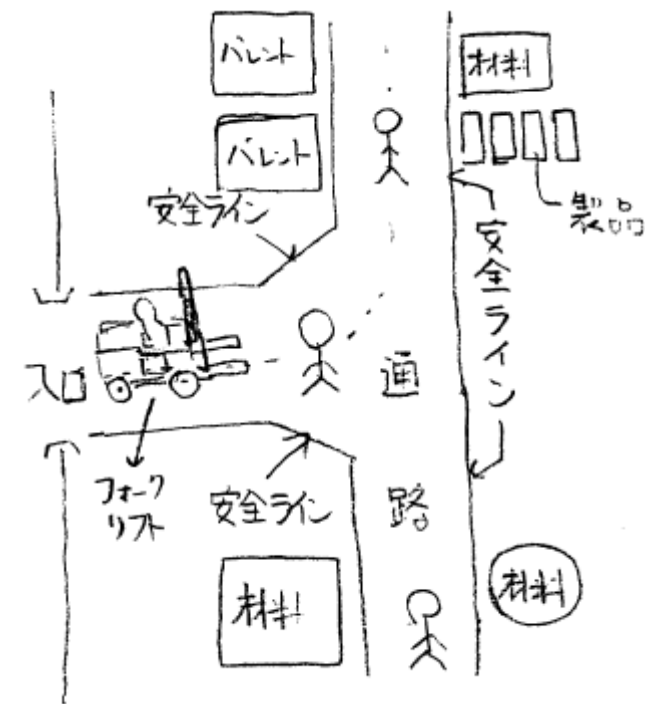 パレット
材料
パレット
製品
安全ライン
安全ライン
入口
通路
フォーク
リフト
安全ライン
材料
材料